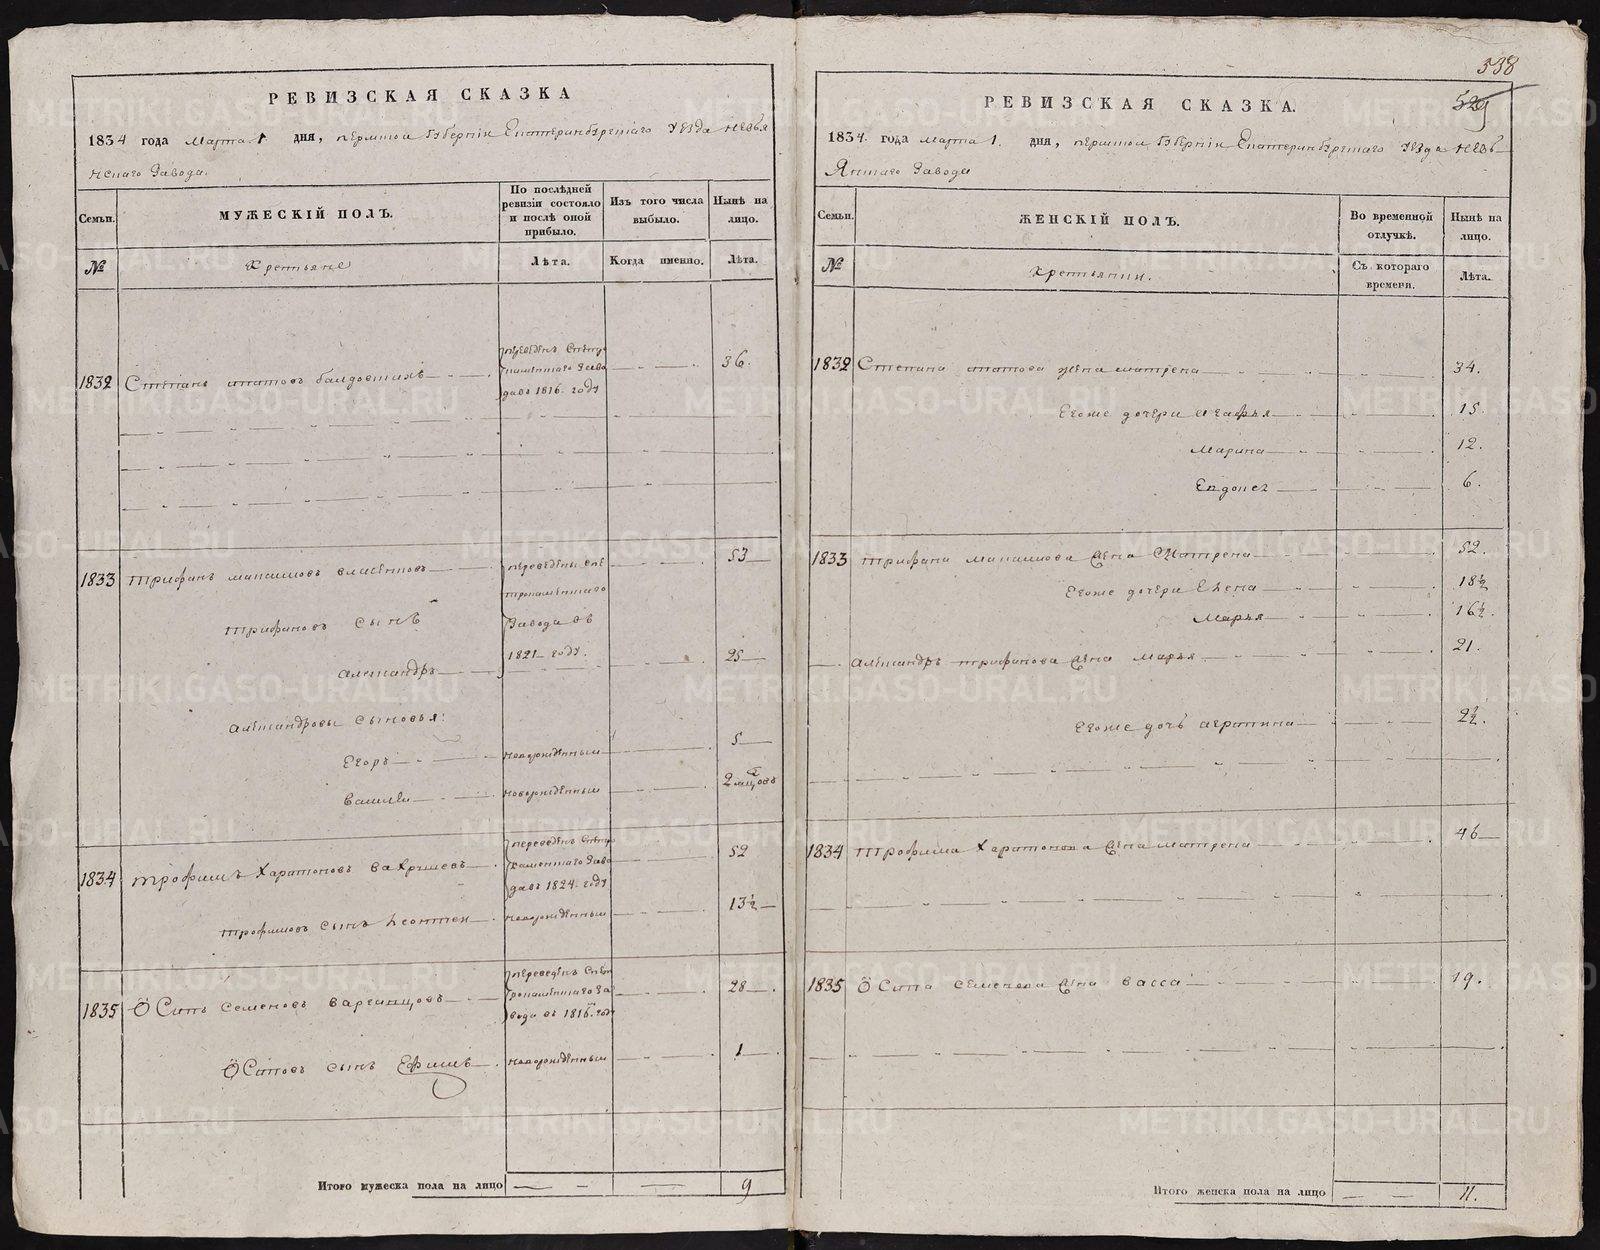 РЕВИЗСКАЯ СКАЗКА
1834 года Марта 1 дня, пермской губернии Екатеринбургскаго уезда Невья
нскаго Завода.
Семьи.
МУЖЕСКІЙ ПОЛЪ.
По послѣдней ревизіи состояло и послѣ оной прибыло.
Изъ того числа выбыло.
Нынѣ на лицо.
№
Крестьяне
Лѣта.
Когда именно.
Лѣта.
1832 Степанъ ипатовъ
переведенъ
Заво
давъ 1816 году
36.
1833 Трифанъ максимовъ власенковъ
переведены
Завода въ
1821 году.
53
трифановъ сынъ
александръ 25
александровы сыновья:
Егоръ новорожденный 5
Василеи новорожденный 2 мцовъ
1834 Трофимъ Харитоновъ Вахрушевъ
переведенъ
каменскаго Заво
давъ 1824 году
52
трофимовъ сынъ Леонтеи новорожденный 13½
1835 Осипъ семеновъ Варганцовъ
переведенъ
ропавленскаго За
вода въ 1816 году
28
Осиповъ сынъ Ефимъ новорожденный 1
Итого мужеска пола на лицо 9
538
529
РЕВИЗСКАЯ СКАЗКА.
1834. года марта 1. дня, пермской губерніи Екатеринбургскаго уезда Невь
Янскаго Завода
Семьи.
ЖЕНСКІЙ ПОЛЪ.
Во временной отлучкѣ.
Нынѣ на лицо.
№
Крестьянки.
Съ котораго времени.
Лѣта.
1832 Степана ипатова жена матрена 34.
Егоже дочери агафья 15.
Марина 12.
Евдокея 6.
1833 трифана максимова жена Матрена 52.
Егоже дочери Елена 18½
Марья 16½.
александръ трифанова жена марья 21.
Егоже дочь 2½.
1834 Трофима Харитонова жена матрена 46
1835 Осипа семенова жена васса 19.
Итого женска пола на лицо 11.
METRIKI.GASO-URAL.RU